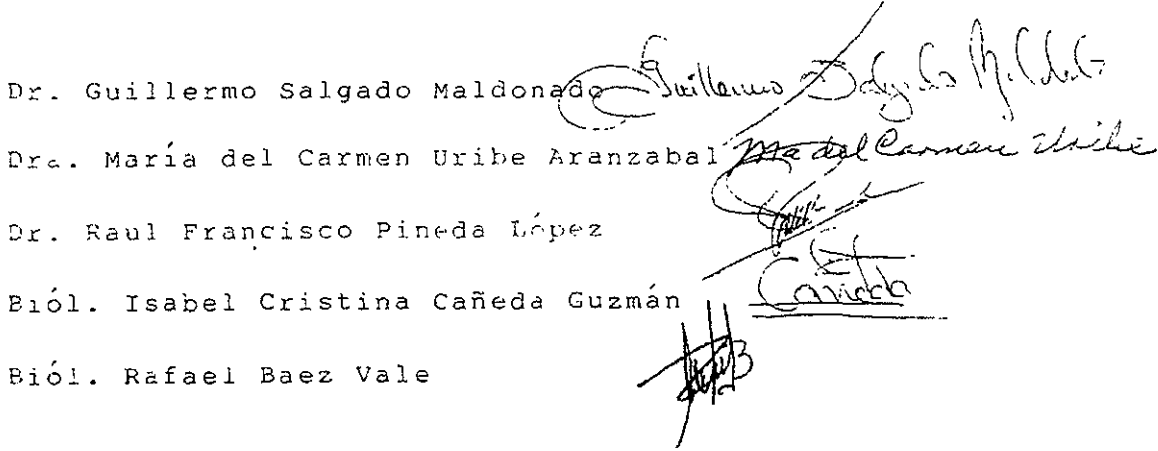 Dr. Guillermo Salgado Maldonado Guillermo Salgado M.
Dra. María del Carmen Uribe Aranzabal Ma del Carmen Uribe
Dr. Raul Francisco Pineda López
Biól. Isabel Cristina Cañeda Guzmán Cañeda
Biól. Rafael Baez Vale